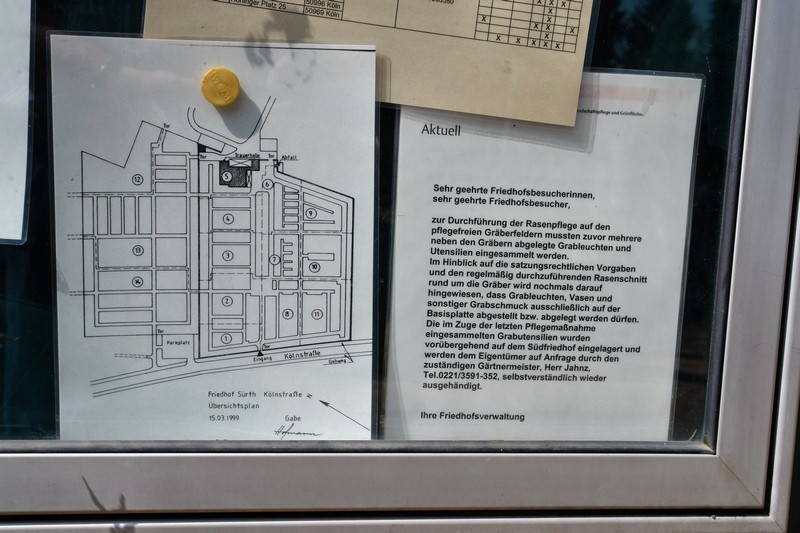 50996 Köln
50969 Köln
X X X
X X X
X X X X
Aktuell
Sehr geehrte Friedhofsbesucherinnen,
sehr geehrte Friedhofsbesucher,
zur Durchführung der Rasenpflege auf den
pflegefreien Gräberfeldern mussten zuvor mehrere
neben den Gräbern abgelegte Grableuchten und
Utensilien eingesammelt werden.
Im Hinblick auf die satzungsrechtlichen Vorgaben
und den regelmäßig durchzuführenden Rasenschnitt
rund um die Gräber wird nochmals darauf
hingewiesen, dass Grableuchten, Vasen und
sonstiger Grabschmuck ausschließlich auf der
Basisplatte abgestellt bzw. abgelegt werden dürfen.
Die im Zuge der letzten Pflegemaßnahme
eingesammelten Grabutensilien wurden
vorübergehend auf dem Südfriedhof eingelagert und
werden dem Eigentümer auf Anfrage durch den
zuständigen Gärtnermeister, Herr Jahnz,
Tel.0221/3591-352, selbstverständlich wieder
ausgehändigt.
Ihre Friedhofsverwaltung
Tor
Tor
Trauerhalle
Tor
Abfall
12
5
6
4
9
13
3
7
10
14
2
8
11
1
Tor
Parkplatz
Tor
Eingang
Kölnstraße
Friedhof Sürth Kölnstraße
Übersichtsplan
15.03.1999
Gabe
Hofmann